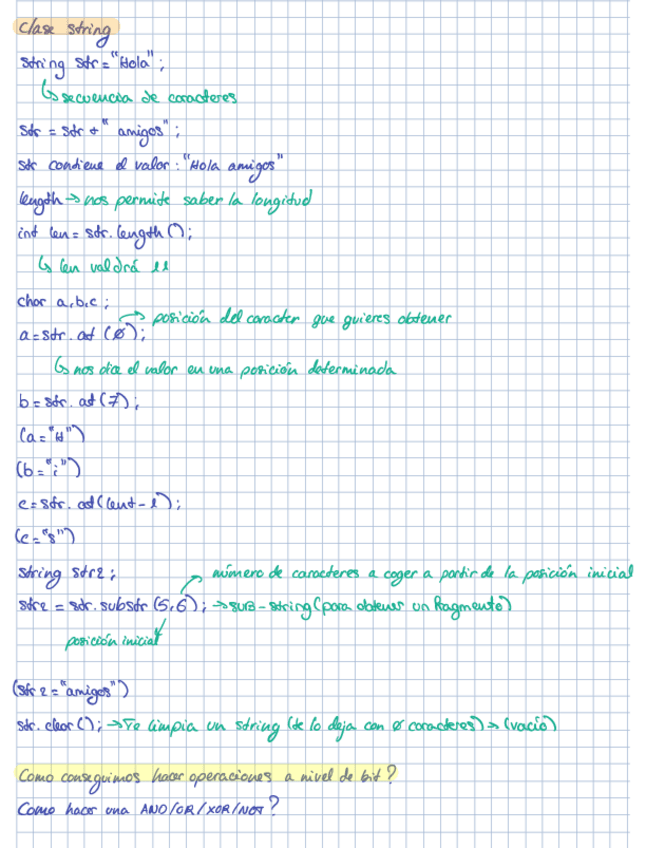 Clase string
string str = "Hola";
↳ secuencia de caracteres
str = str + " amigos";
str contiene el valor: "Hola amigos"
length → nos permite saber la longitud
int len = str.length();
↳ len valdrá 11
char a,b,c;
→ posición del caracter que quieres obtener
a = str.at(0);
↳ nos dice el valor en una posición determinada
b = str.at(7);
(a = "H")
(b = "i")
c = str.at(lent-1);
(c = "s")
string str2;
→ número de caracteres a coger a partir de la posición inicial
str2 = str.substr(5,6); → SUB-string (para obtener un fragmento)
posición inicial
(str2 = "amigos")
str.clear(); → Te limpia un string (te lo deja con 0 caracteres) → (vació)
Como conseguimos hacer operaciones a nivel de bit?
Como hacer una AND/OR/XOR/NOT?